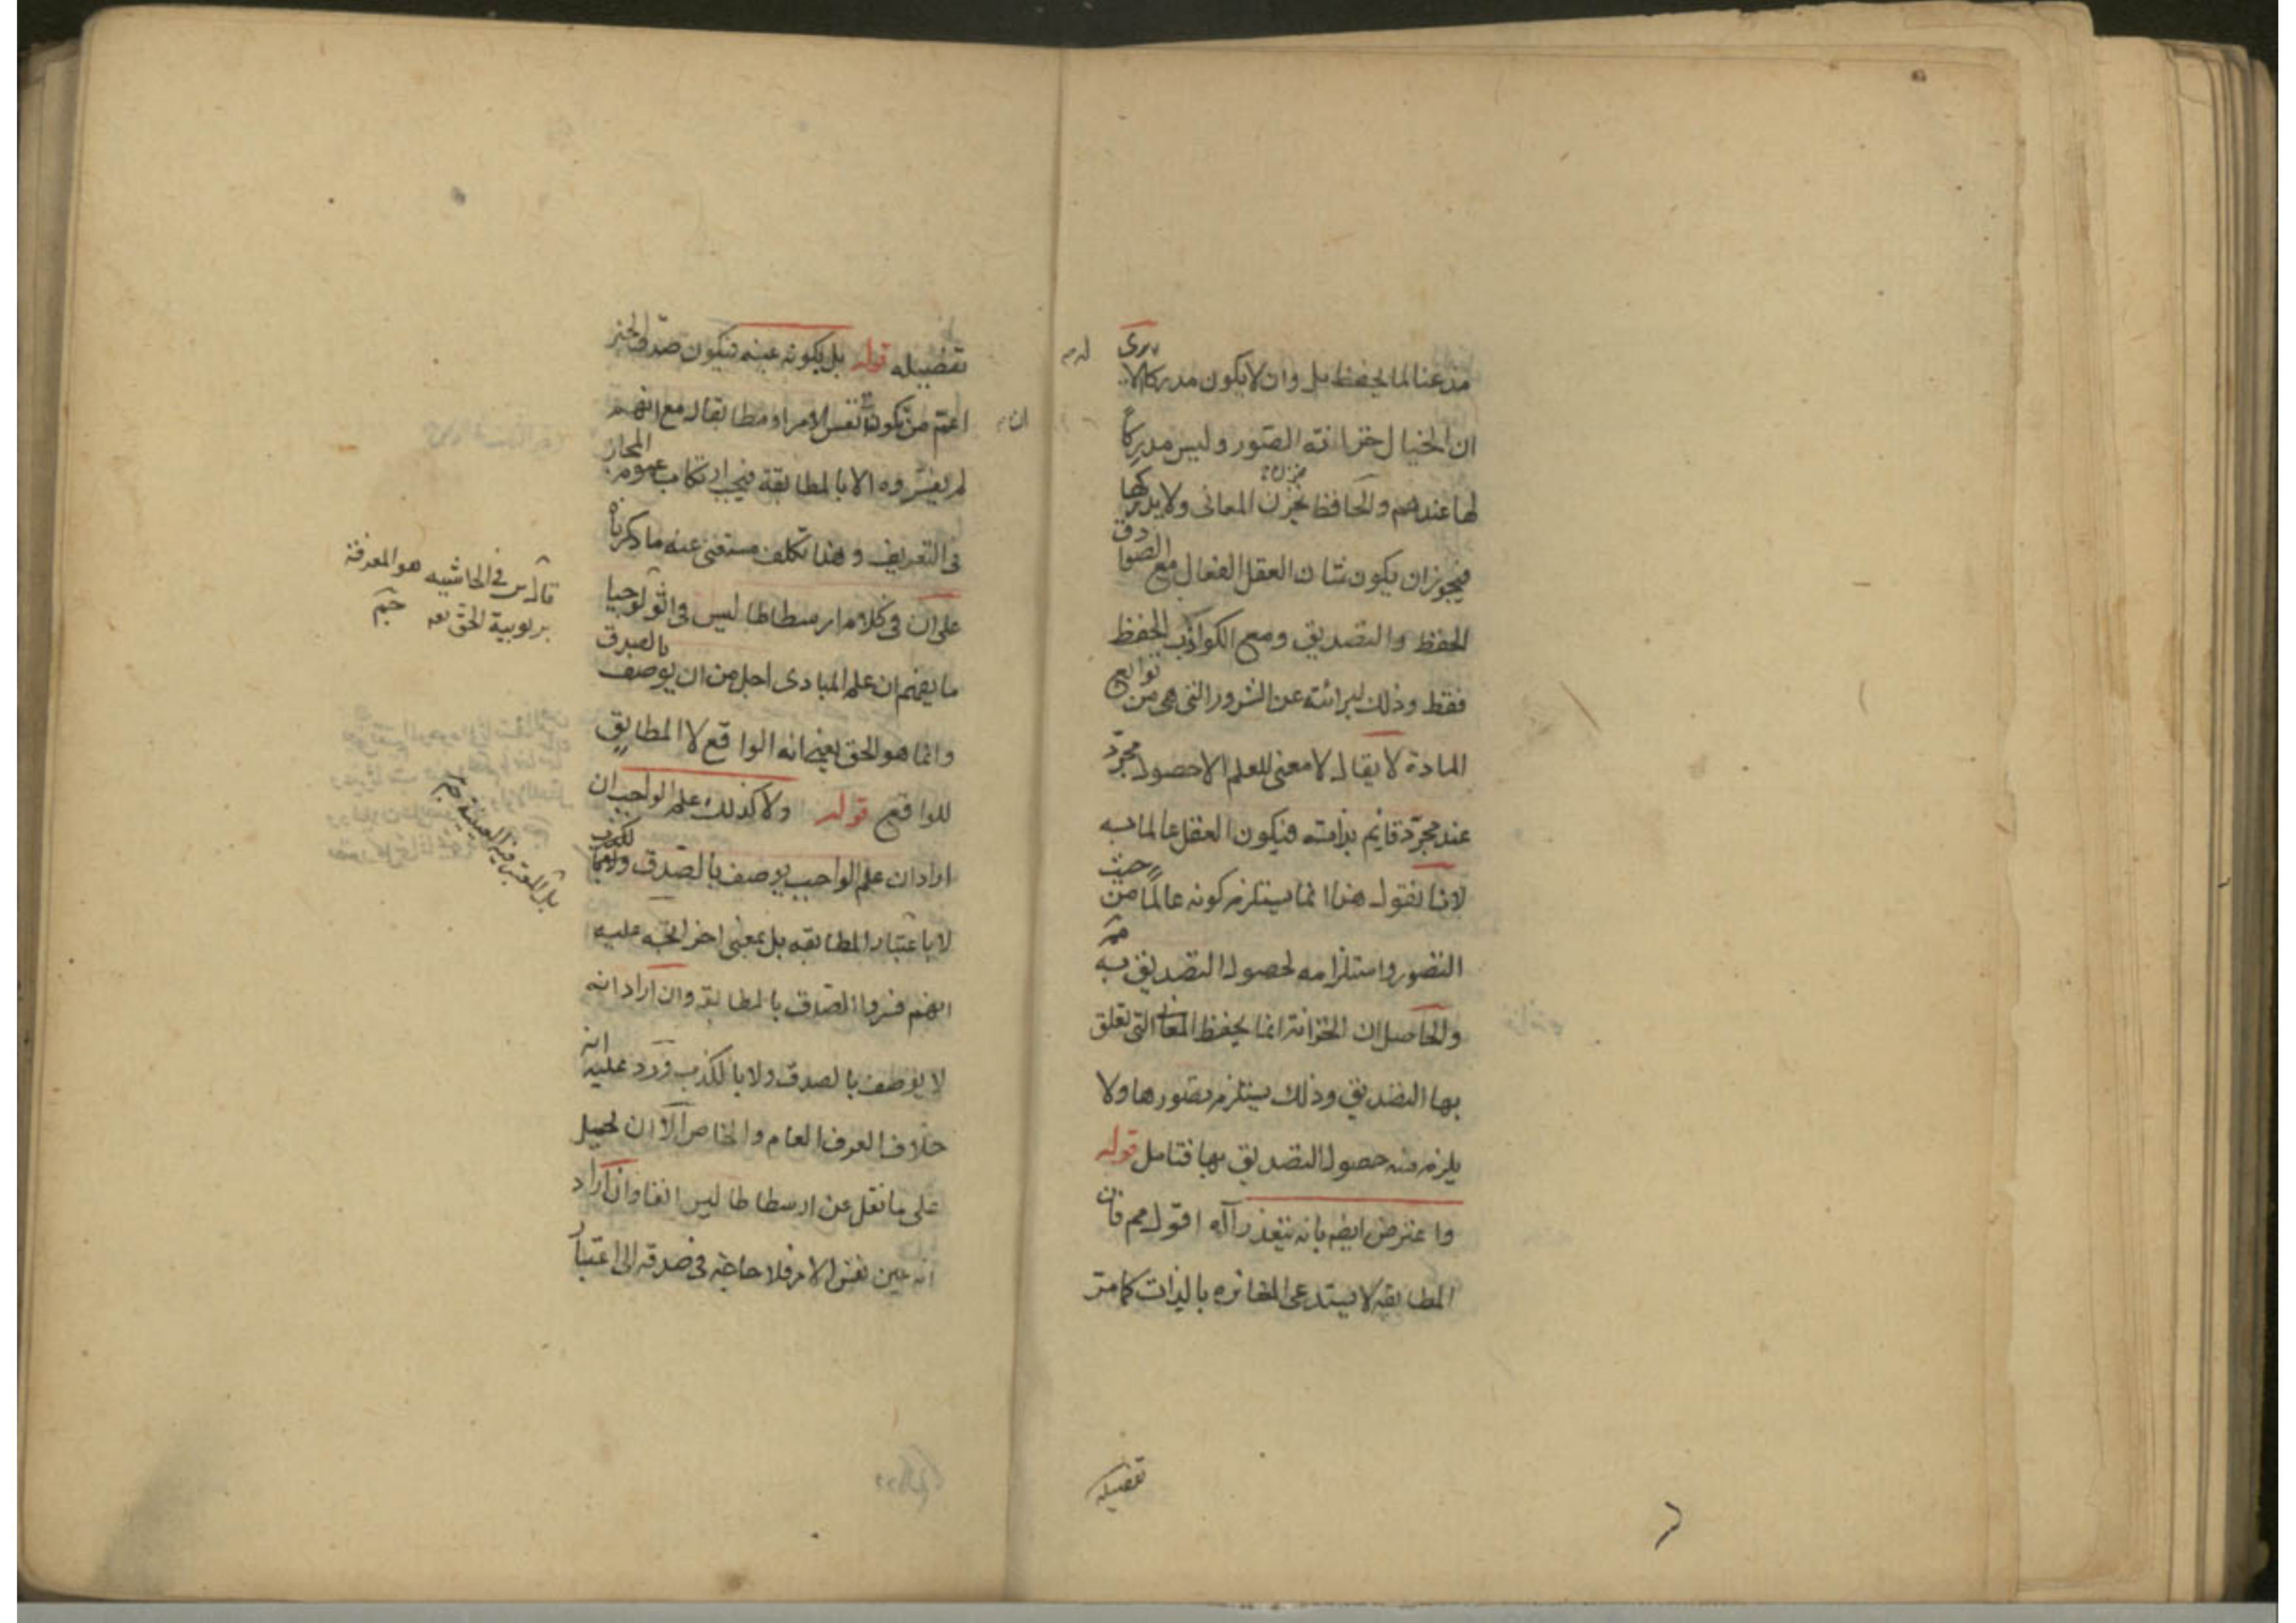 مذعنا لما يحفظ بل وان لا يكون مدركا الا يرى
ان الخيال خزانة الصور وليس مدركاً
لها عندهم والحافظ يخزن المعانى ولا يدركها
فيجوز ان يكون شان العقل الفعال مع الصوادق
الحفظ والتصديق ومع الكواذب الحفظ
فقط وذلك لبرائته عن الشرور التى هى من توابع
المادة لا يقال لا معنى للعلم الا حصول مجرّد
عند مجرّد قايم بذاته فيكون العقل عالما به
لانا نقول هذا انما يستلزم كونه عالماً من حيث
التصور واستلزامه لحصول التصديق به مم
والحاصل ان الخزانة انما يحفظ المعانى التى تعلق
بها التصديق وذلك يستلزم تصورها ولا
يلزم منه حصول التصديق بها فتامل قوله
واعترض ايضه بانه يتعذر آاه اقول مم فان
المطابقة لا يستدعى المغايرة بالذات كما مرّ
تفضيله
تفضيله قوله بل بكونه عينه فيكون صدق الخبر
اعمّ من ان تكون نفس الامر او مطابقا له مع انهم
لم يفسّروه الا بالمطابقة فيجب ارتكاب عموم المجاز
فى التعريف وهذا تكلف مستغنى عنه ما ذكرناه
على ان فى كلام ارسطاطاليس فى اثولوجيا
ما يفهم ان علم المبادى اجل من ان يوصف بالصدق
وانما هو الحق بمعنى انه الواقع لا المطابق
للواقع قوله ولا كذلك علم الواجب ان
اراد ان علم الواجب يوصف بالصدق
لا باعتبار المطابقه بل بمعنى اخر اتجه عليه
انهم فسروا الصدق بالمطابقة وان اراد انه
لا يوصف بالصدق ولا بالكذب ورد عليه انه
خلاف العرف العام والخاص الا ان يحيل
على ما نقل عن ارسطاطاليس انفا وان اراد
انه عين نفس الامر فلا حاجة فى صدقه الى اعتبار
قال س فى الحاشيه هو المعرفة
بربوبية الحق تعه